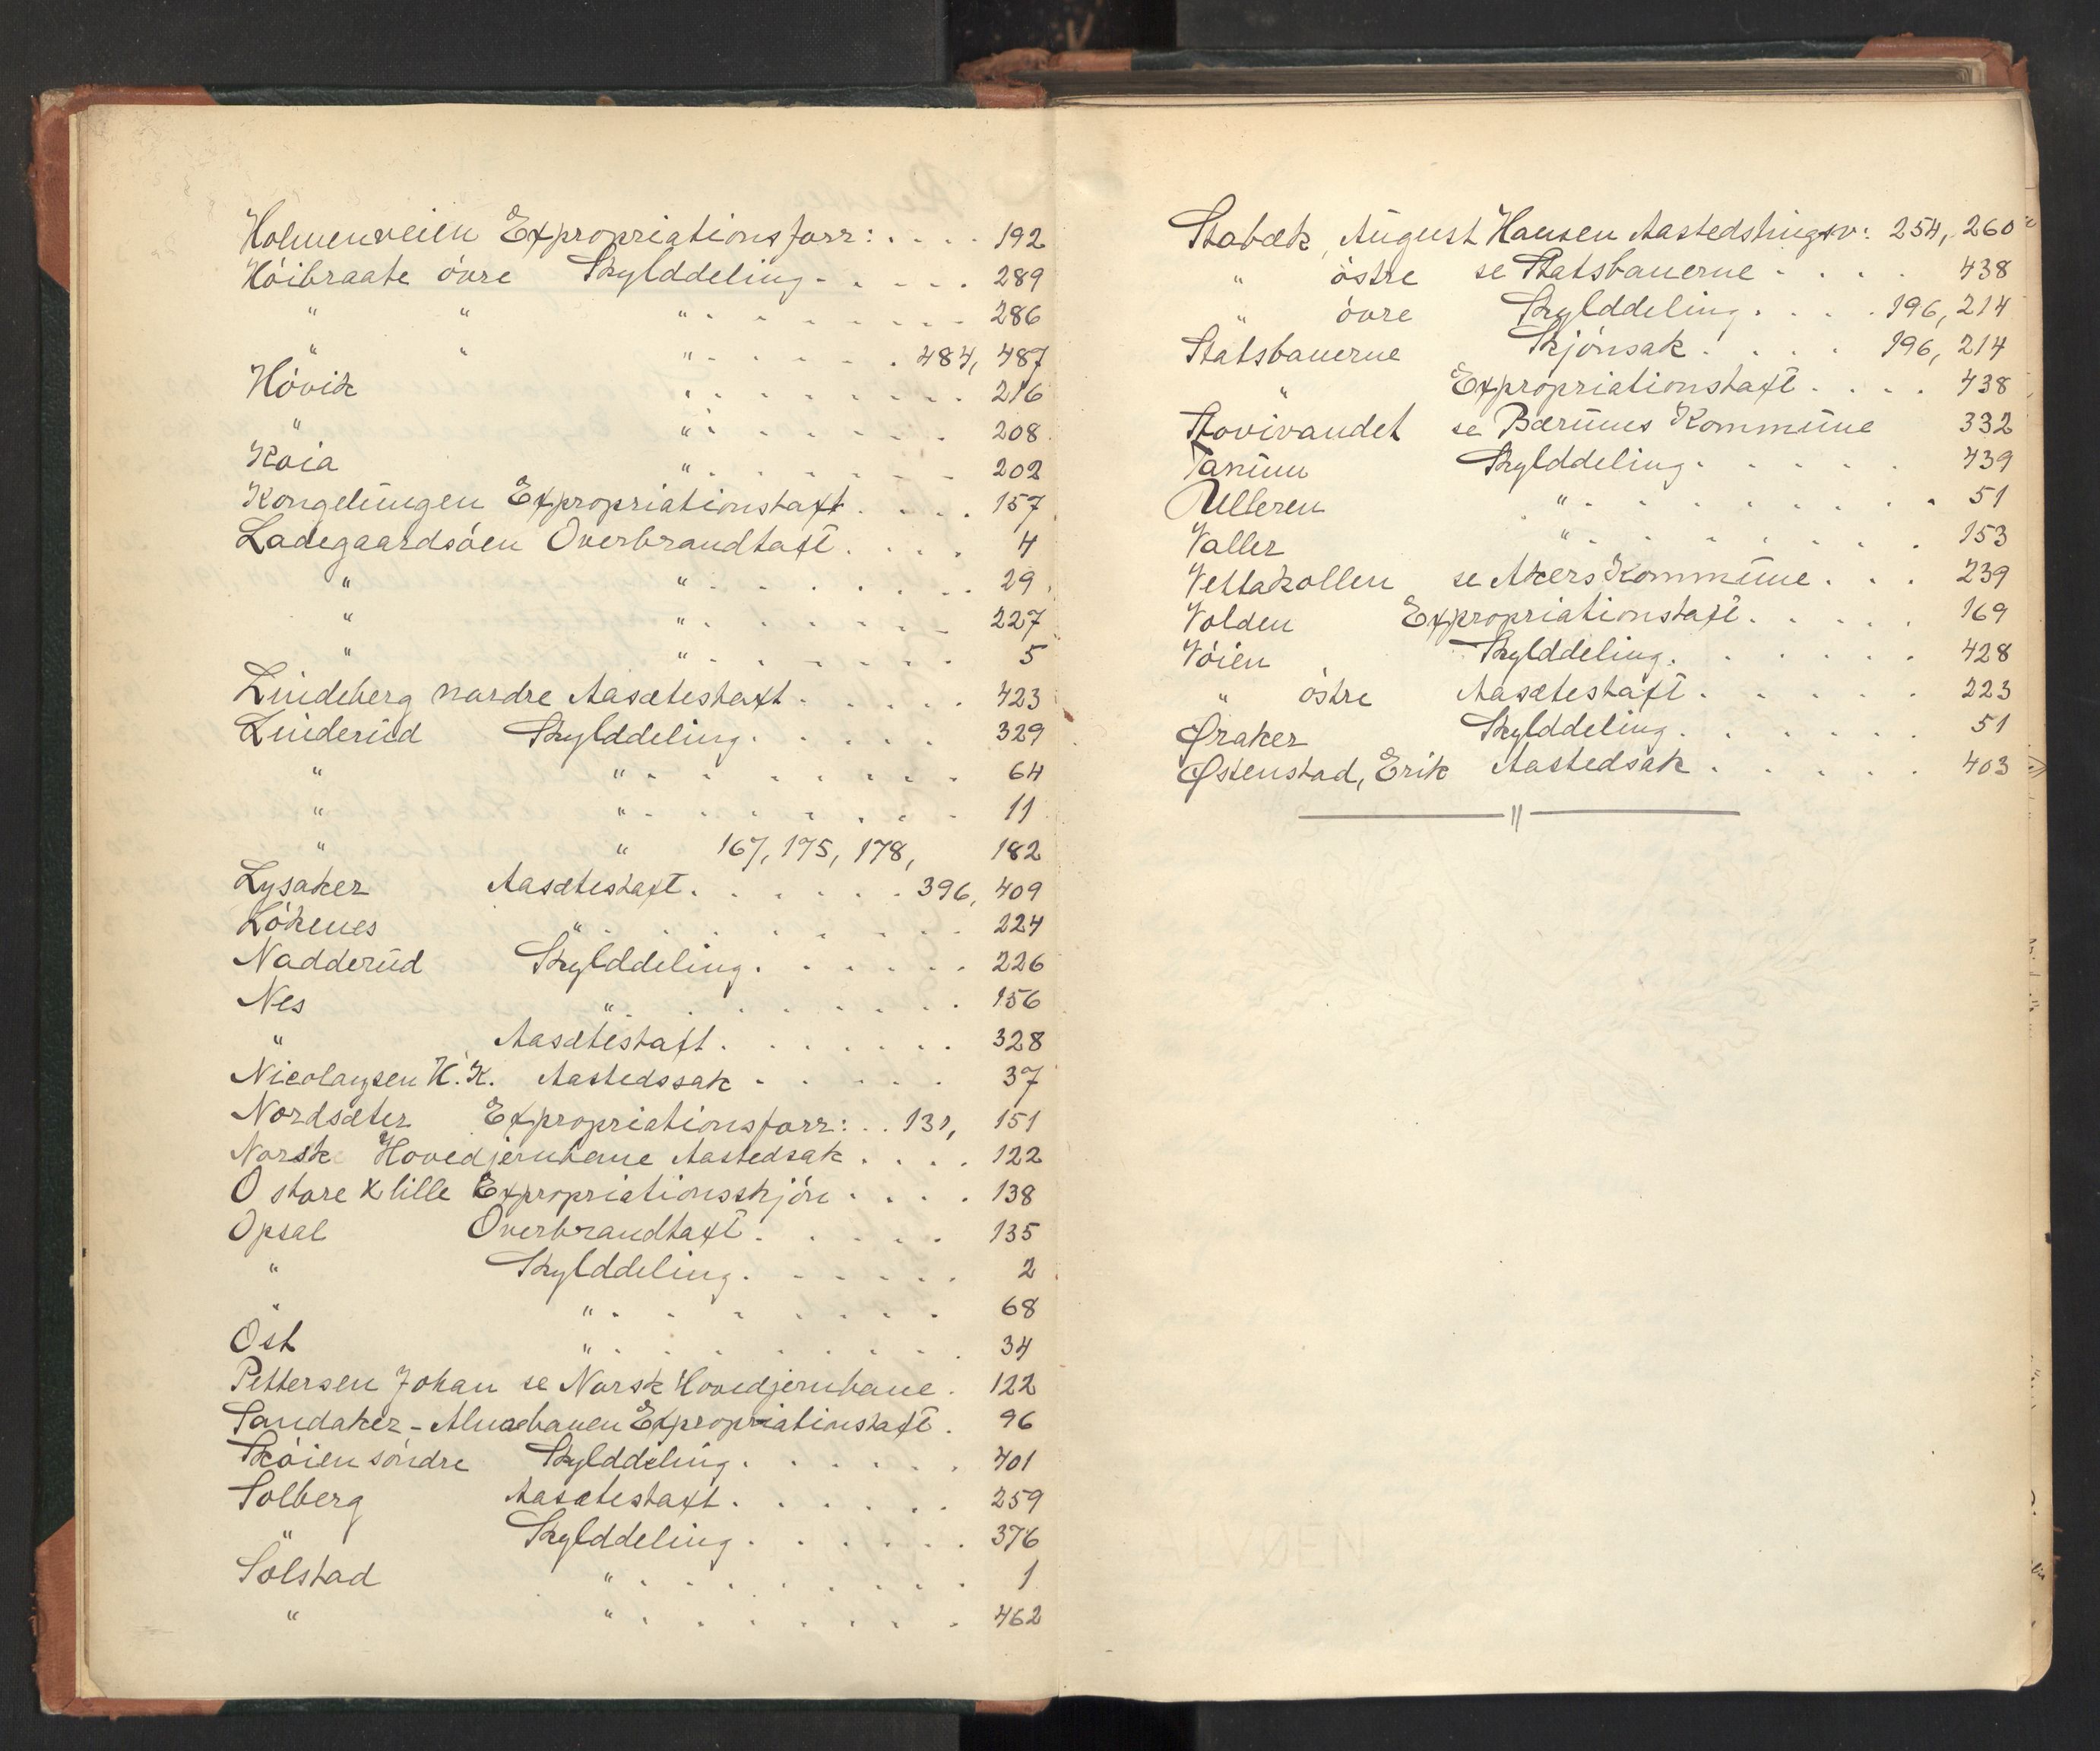 Holmenveien Expropriationsforr: . . . . 192
Höibraate övre Skylddeling . . . . . 289
" " " . . . . . . . 286
" " " . . . . . . 484, 487
Hövik " . . . . . . . 216
" " . . . . . . . 208
Koia " . . . . . . . 202
Kongelungen Expropriationstaxt . . . . 157
Ladegaardsöen Overbrandtaxt . . . . 4
" " . . . . . . . 29
" " . . . . . . . 227
" " . . . . . . . 5
Lindeberg nordre Aasætestaxt . . . . . 423
Linderud Skylddeling . . . . . 329
" " . . . . . . . 64
" " . . . . . . . 11
" " 167, 175, 178, 182
Lysaker Aasætestaxt . . . . . . 396, 409
Lökenes " . . . . . . . 224
Nadderud Skylddeling . . . . . . 226
Nes " . . . . . . . 156
" Aasætestaxt . . . . . . . 328
Nicolaysen K. K. Aastedssak . . . . . 37
Nordsæter Expropriationsforr: . . 131, 151
Norsk Hovedjernbane Aastedsak . . . . 122
O store & lille Expropriationsskjön . . . . 138
Opsal Overbrandtaxt . . . . . 135
" Skylddeling . . . . . . 2
" " . . . . . . . 68
Ost " . . . . . . . 34
Pettersen Johan se Norsk Hovedjernbane . 122
Sandaker - Alnabanen Expropriationstaxt . 96
Sköien söndre Skylddeling . . . . . . 401
Solberg Aasætestaxt . . . . . . 259
" Skylddeling . . . . . . 376
Solstad " . . . . . . . 1
" " . . . . . . . 462
Stabæk, August Hansen Aastedstingsv: 254, 260
" östre se Statsbanerne . . . . 438
" övre Skylddeling . . . . 196, 214
Statsbanerne Skjönsak . . . . 196, 214
" Expropriationstaxt . . . . 438
Stovivandet se Bærums Kommune 332
Tanum Skylddeling . . . . . 439
Ulleren " . . . . . . . . 51
Valler " . . . . . . . . 153
Vettakollen se Akers Kommune . . . 239
Volden Expropriationstaxt . . . . . 169
Vöien Skylddeling . . . . . . 428
" östre Aasætestaxt . . . . . 223
Øraker Skylddeling . . . . . . 51
Østenstad, Erik Aastedsak . . . . . 403